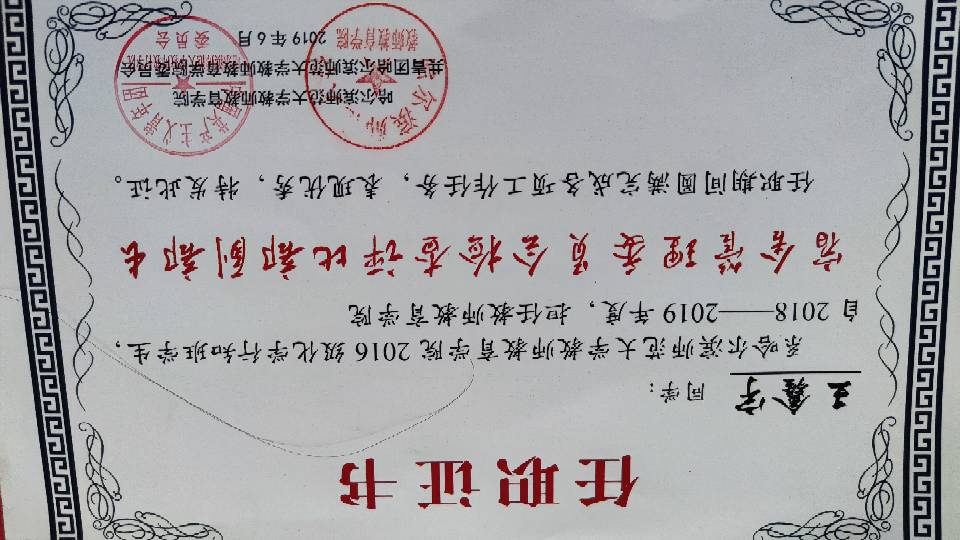 任职证书
王鑫宇 同学：
系哈尔滨师范大学教师教育学院2016级化学行知班学生，
自2018——2019年度，担任教师教育学院
宿舍管理委员会检查评比部副部长
任职期间圆满完成各项工作任务，表现优秀，特发此证。
哈尔滨师范大学教师教育学院
共青团哈尔滨师范大学教师教育学院委员会
2019年6月
教师教育学院
委员会